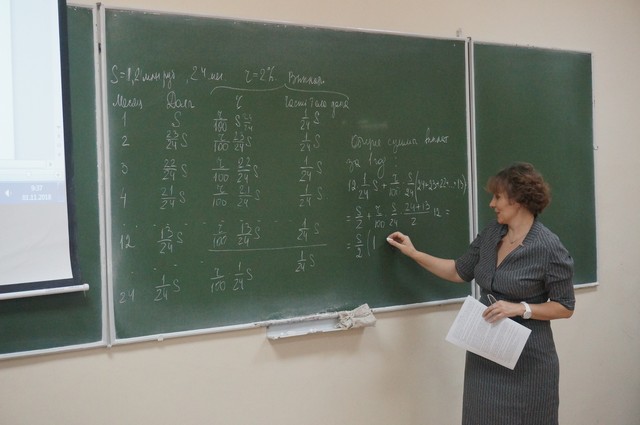 S=1,2 млн руб, 24 мес. r=2% Выплат.
Месяц Долг r Части тела долга
1 S r/100 S 1/24 S
2 23/24 S r/100 23/24 S 1/24 S
3 22/24 S r/100 22/24 S 1/24 S
4 21/24 S r/100 21/24 S 1/24 S
12 13/24 S r/100 13/24 S 1/24 S
24 1/24 S r/100 1/24 S 1/24 S
Общая сумма выплат
за 1 год:
12 · 1/24 S + r/100 · S/24 (24+23+22+...+13)
= S/2 + r/100 · S/24 · (24+13)/2 · 12 =
= S/2 (1